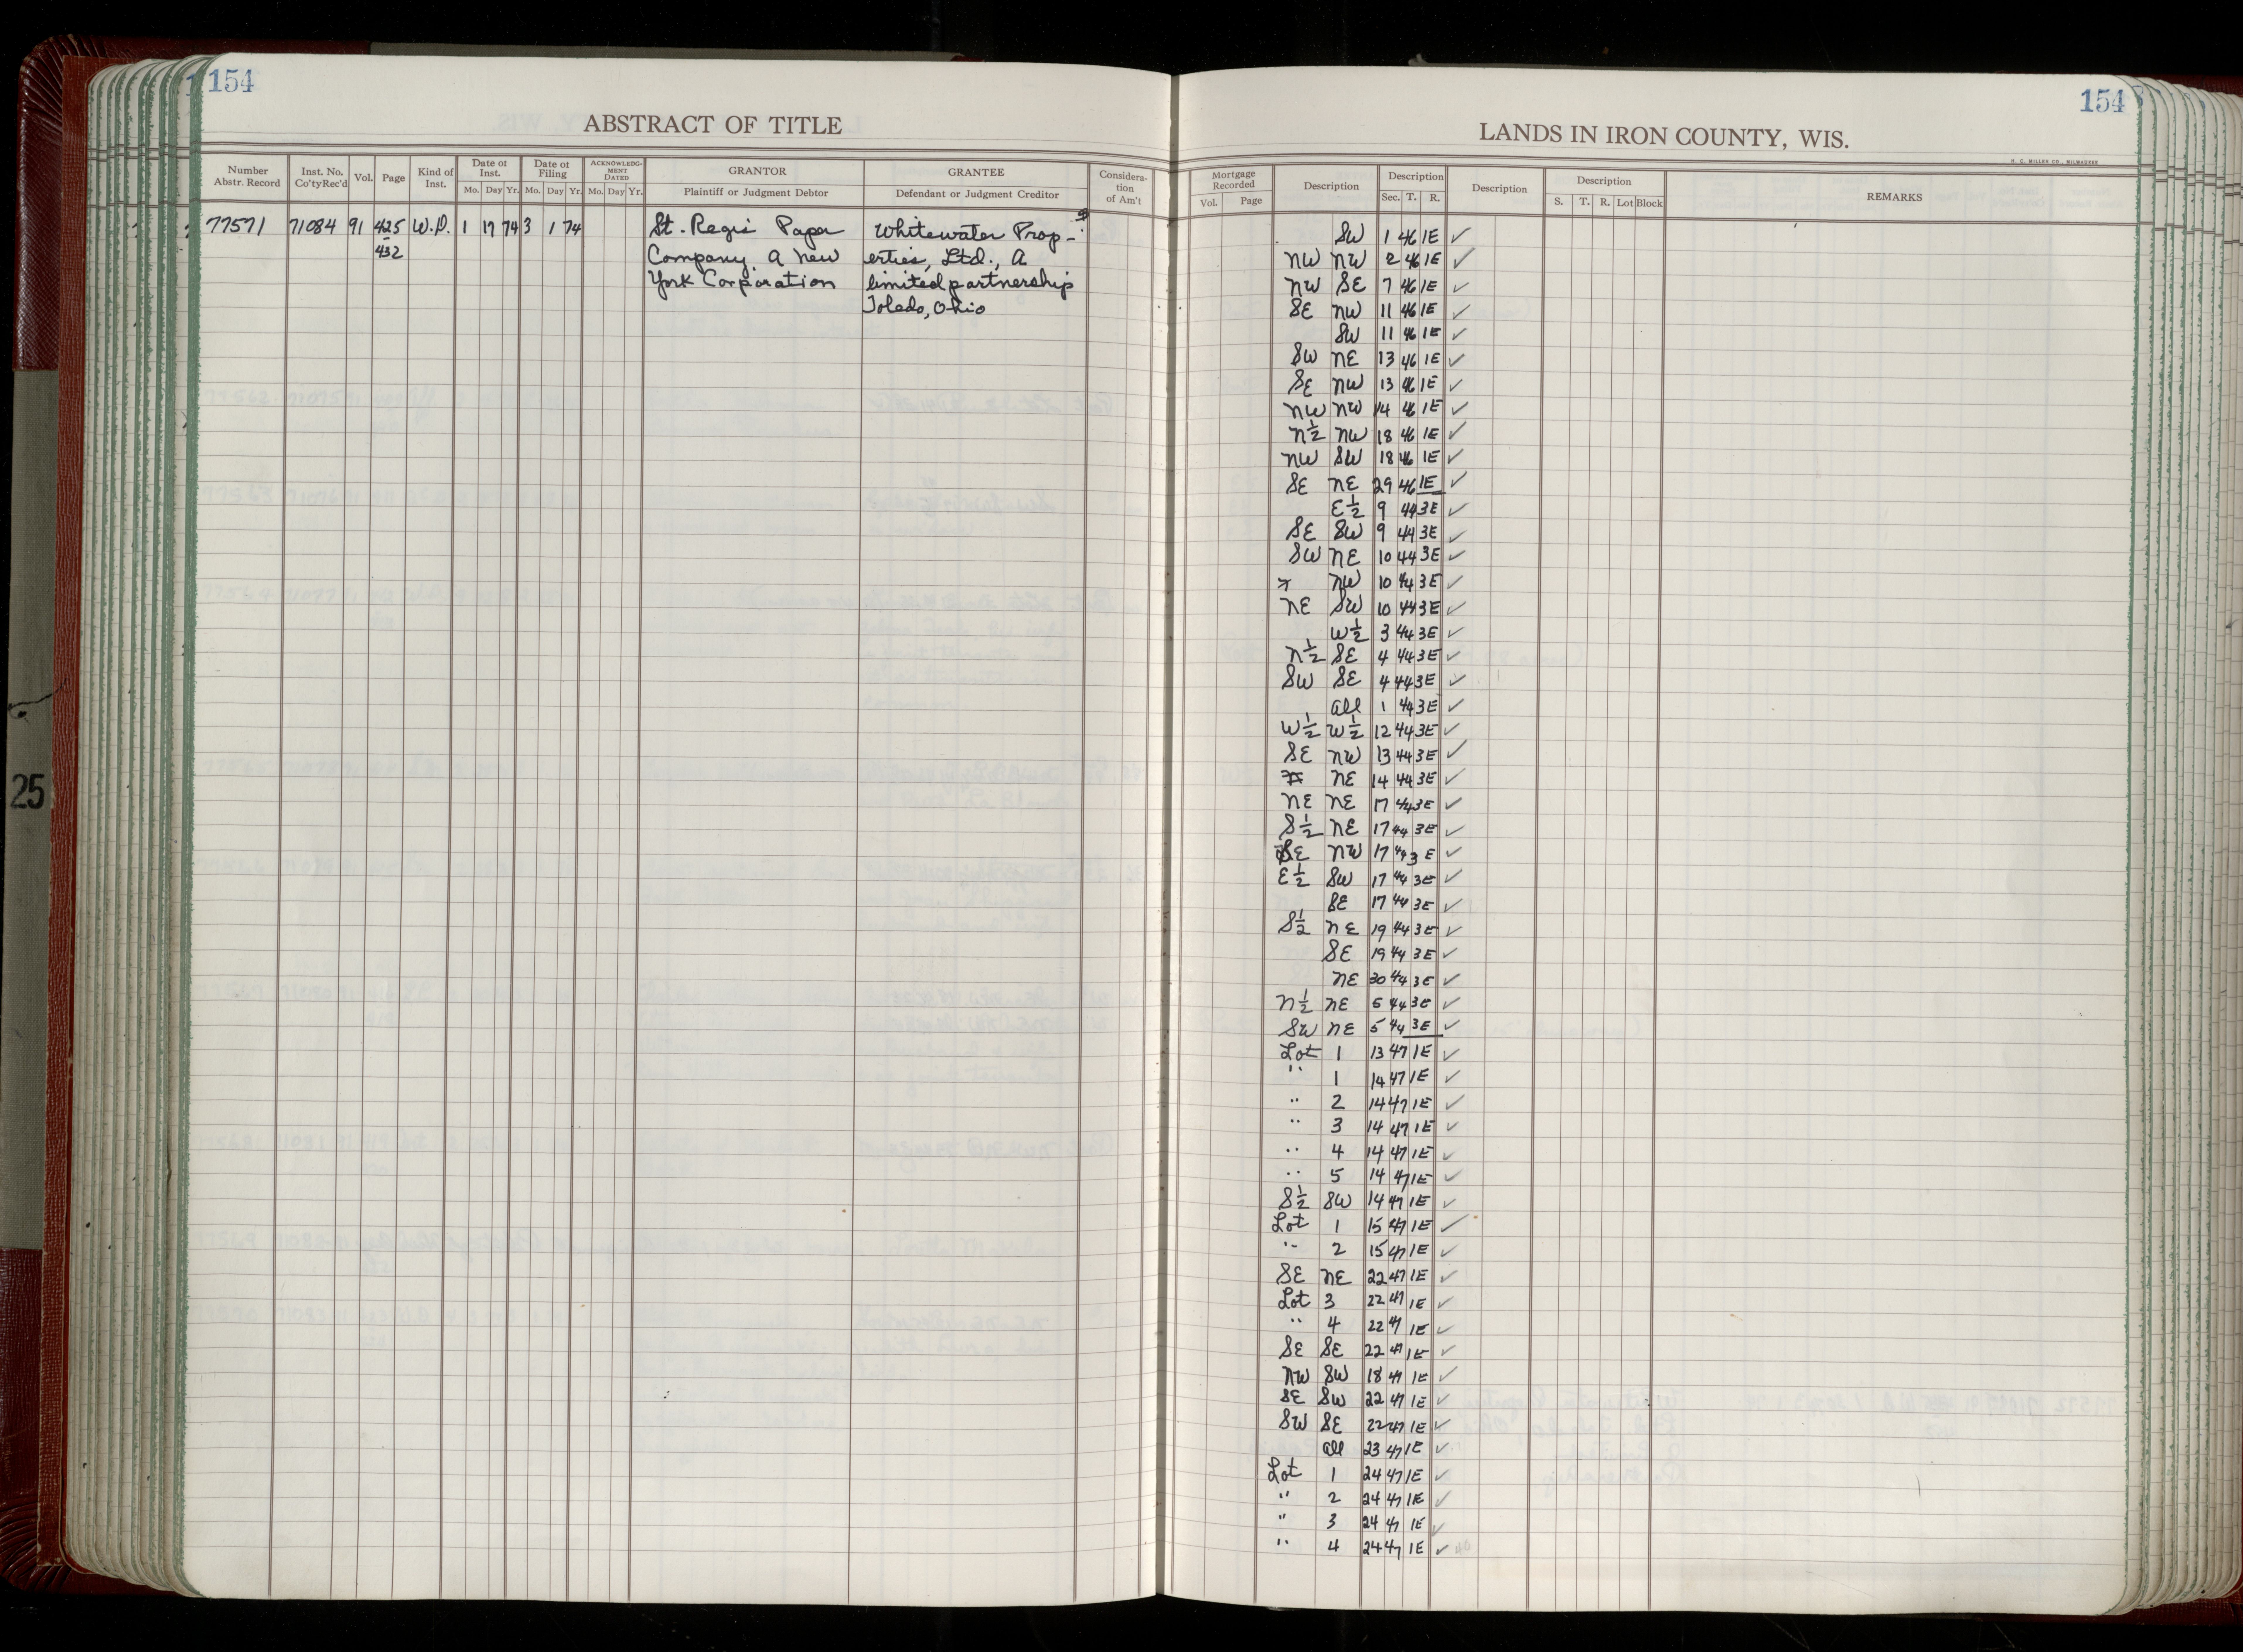 154
ABSTRACT OF TITLE
Number Abstr. Record
Inst. No. Co'tyRec'd
Vol.
Page
Kind of Inst.
Date of Inst.
Mo. Day Yr.
Date of Filing
Mo. Day Yr.
ACKNOWLEDG-MENT DATED
Mo. Day Yr.
GRANTOR
Plaintiff or Judgment Debtor
GRANTEE
Defendant or Judgment Creditor
Considera-tion of Am't
77571 71084 91 425 W.D. 1 17 74 3 1 74 St. Regis Paper Whitewater Prop-
432 Company a New erties, Ltd., a
York Corporation limited partnership
Toledo, Ohio
25
154
LANDS IN IRON COUNTY, WIS.
H. C. MILLER CO., MILWAUKEE
Mortgage Recorded
Vol. Page
Description
Description
Sec. T. R.
Description
Description
S. T. R. Lot Block
REMARKS
SW 1 46 1E ✓
NW NW 2 46 1E ✓
NW SE 7 46 1E ✓
SE NW 11 46 1E ✓
SW 11 46 1E ✓
SW NE 13 46 1E ✓
SE NW 13 46 1E ✓
NW NW 14 46 1E ✓
N½ NW 18 46 1E ✓
NW SW 18 46 1E ✓
SE NE 29 46 1E ✓
E½ 9 44 3E ✓
SE SW 9 44 3E ✓
SW NE 10 44 3E ✓
NW 10 44 3E ✓
NE SW 10 44 3E ✓
W½ 3 44 3E ✓
N½ SE 4 44 3E ✓
SW SE 4 44 3E ✓
all 1 44 3E ✓
W½ W½ 12 44 3E ✓
SE NW 13 44 3E ✓
NE 14 44 3E ✓
NE NE 17 44 3E ✓
S½ NE 17 44 3E ✓
SE NW 17 44 3E ✓
E½ SW 17 44 3E ✓
SE 17 44 3E ✓
S½ NE 19 44 3E ✓
SE 19 44 3E ✓
NE 30 44 3E ✓
N½ NE 5 44 3E ✓
SW NE 5 44 3E ✓
Lot 1 13 47 1E ✓
" 1 14 47 1E ✓
" 2 14 47 1E ✓
" 3 14 47 1E ✓
" 4 14 47 1E ✓
" 5 14 47 1E ✓
S½ SW 14 47 1E ✓
Lot 1 15 47 1E ✓
" 2 15 47 1E ✓
SE NE 22 47 1E ✓
Lot 3 22 47 1E ✓
" 4 22 47 1E ✓
SE SE 22 47 1E ✓
NW SW 18 47 1E ✓
SE SW 22 47 1E ✓
SW SE 22 47 1E ✓
all 23 47 1E ✓
Lot 1 24 47 1E ✓
" 2 24 47 1E ✓
" 3 24 47 1E ✓
" 4 24 47 1E ✓